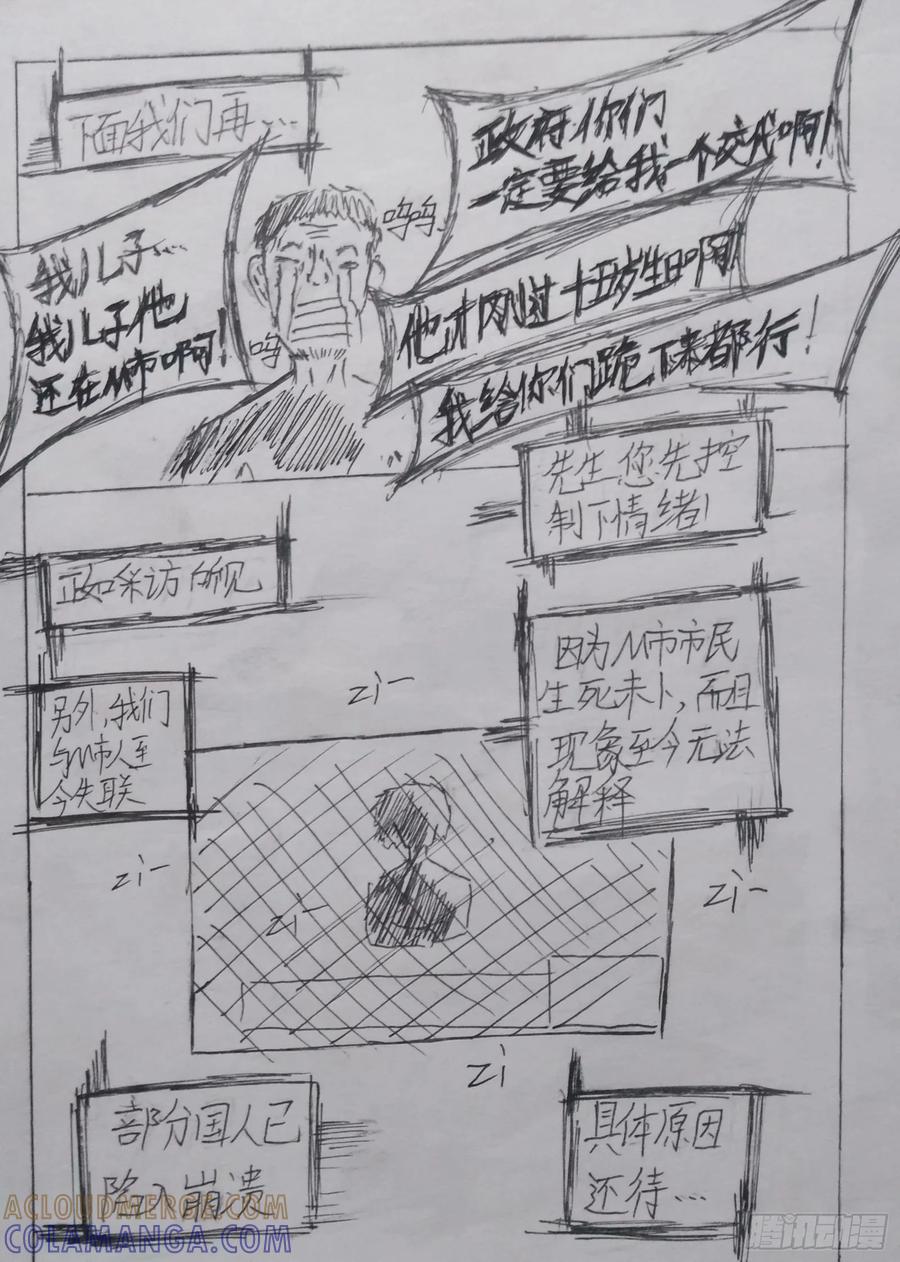 下面我们再...
政府你们
一定要给我一个交代啊!
呜呜
我儿子...
我儿子他
还在M市啊!
呜
他才刚过十五岁生日啊!
我给你们跪下来都行!
先生您先控
制下情绪!
正如采访所见
因为M市市民
生死未卜,而且
现象至今无法
解释
另外,我们
与M市人至
今失联
zi-
zi-
zi-
zi-
zi
部分国人已
陷入崩溃
具体原因
还待...
ACLOUDMERGE.COM
COLAMANGA.COM
腾讯动漫